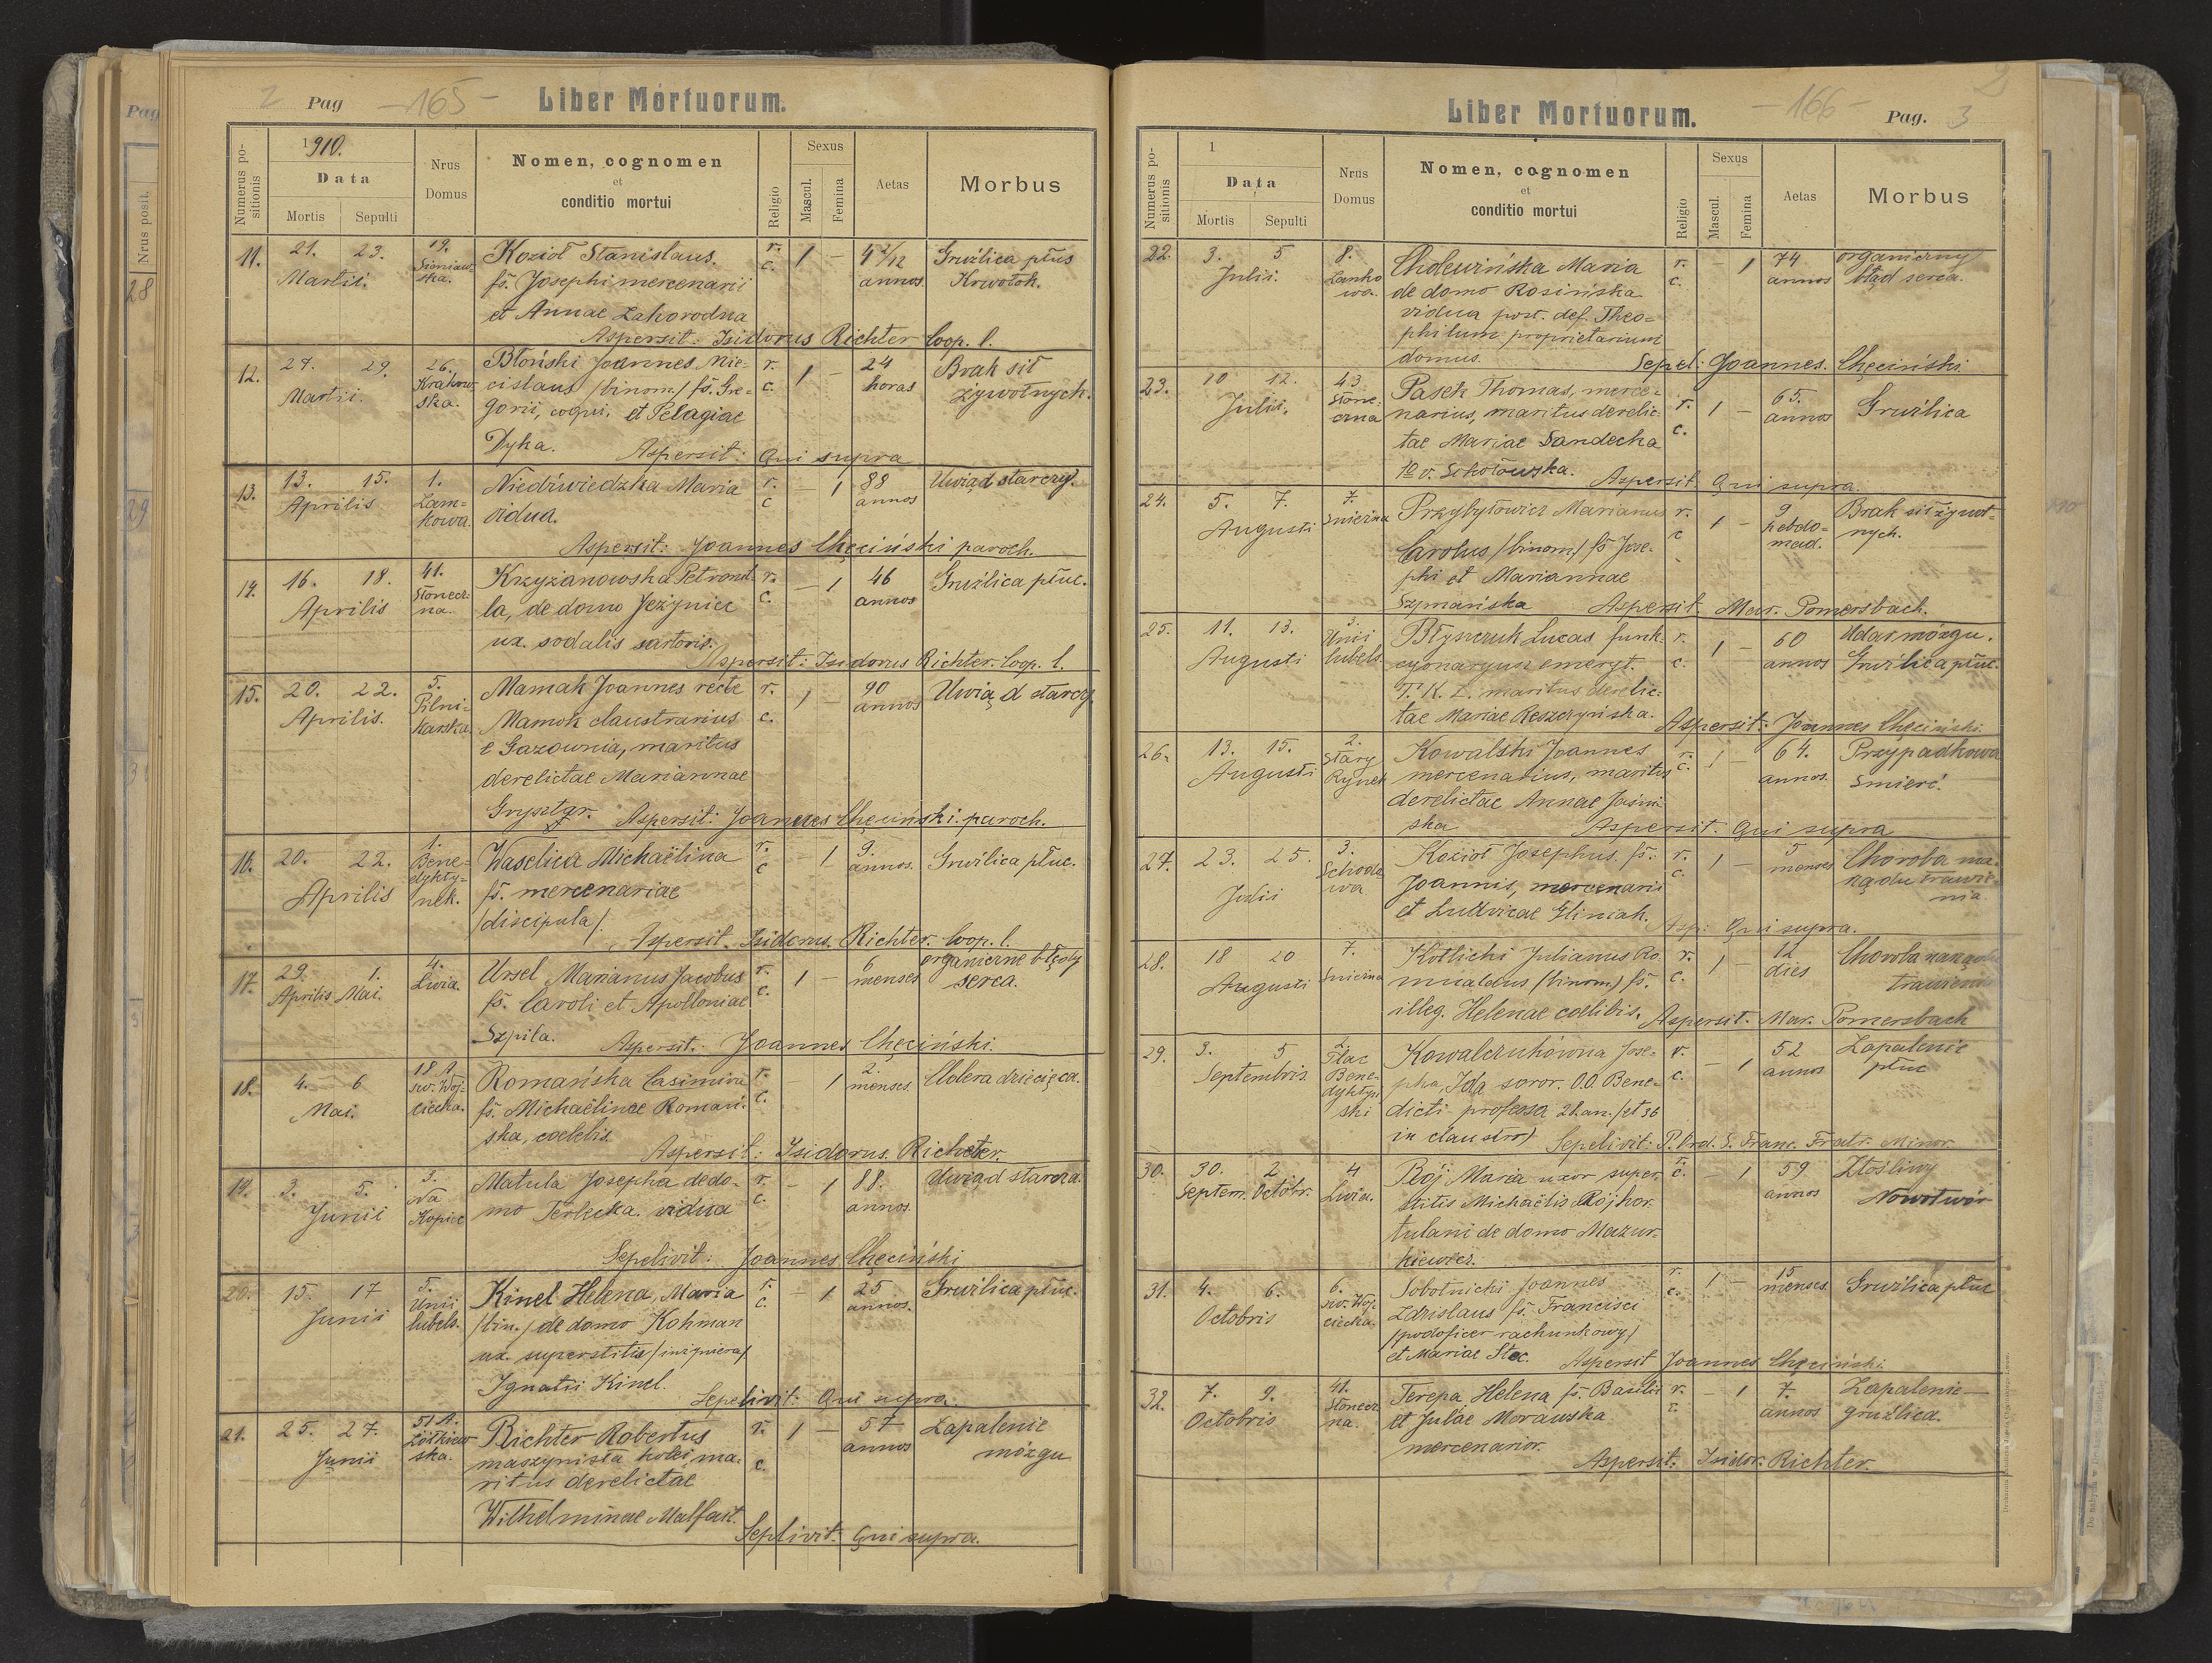 2 Pag -165- Liber Mortuorum.
Numerus positionis
1910.
Data
Mortis Sepulti
Nrus Domus
Nomen, cognomen
et
conditio mortui
Religio
Sexus
Mascul. Femina
Aetas
Morbus
11. 21. 23. 19. Koziol Stanislaus. r. 1 — 4 2/12 Gruźlica płuc
Martii. Sieniawska. fs. Josephi mercenarii c. annos Krwotok.
et Annae Zahorodna
Aspersit: Isidorus Richter Coop. l.
12. 27. 29. 26. Błoński Joannes Mie- r. 1 — 24 Brak sił
Martii. Krakowska. cislaus /binom./ fs. Gre- c. horas żywotnych.
gorii, coqui, et Pelagiae
Dyka. Aspersit: Qui supra
13. 13. 15. 1. Niedźwiedzka Maria r. — 1 88 Uwiąd starczy.
Aprilis Zam- vidua. c annos
kowa.
Aspersit: Joannes Chęciński paroch.
14. 16. 18. 41. Krzyżanowska Petronel- r. — 1 46 Gruźlica płuc.
Aprilis Słonecz- la, de domo Jeżyniec c. annos
na. ux. sodalis sartoris.
Aspersit: Isidorus Richter. Coop. l.
15. 20. 22. 5. Mamak Joannes recte r. 1 — 90 Uwiąd starcz.
Aprilis. Pilni- Mamok claustrarius c. annos
karska. e Gazownia, maritus
derelictae Mariannae
Grysztgr. Aspersit: Joannes Chęciński paroch.
16. 20. 22. 1. Waselica Michaëlina r. — 1 9. Gruźlica płuc.
Aprilis Bene- fs. mercenariae c annos.
dykty-
nek. /discipula/.
Aspersit. Isidorus. Richter. Coop. l.
17. 29. 1. 4. Ursel Marianus Jacobus r. 1 — 6 organiczne błędy
Aprilis Mai. Lwia. fs. Caroli et Apolloniae c. menses serca.
Szpila. Aspersit: Joannes Chęciński.
18. 4. — 6 18 A. Romańska Casimira r. — 1 2. Cholera dziecięca.
Mai. św. Woj- fs. Michaëlinae Romań- c. menses.
ciecha. ska, coelebis.
Aspersit: Isidorus. Richter.
19. 3. 5. 3. Matula Josepha de do- r. — 1 88. Uwiąd starcza.
Junii Na mo Terlecka. vidua c. annos.
Kopiec
Sepelivit: Joannes Chęciński
20. 15. 17 5. Kinel Helena, Maria r. — 1 25 Gruźlica płuc.
Junii Unii /bin./ de domo Kohman c. annos.
lubels. ux. superstitis /inżyniera/
Ignatii Kinel. Sepelivit: Qui supra.
21. 25. 27. 51 A. Richter Robertus r. 1 — 57 Zapalenie
Junii Żółkiew maszynista kolei ma- c. annos mózgu
ska. ritus derelictae
Wilhelminae Malfait. Seplivit. Qui supra.
Liber Mortuorum. -166- Pag. 3
2
Numerus positionis
1
Data
Mortis Sepulti
Nrus Domus
Nomen, cognomen
et
conditio mortui
Religio
Sexus
Mascul. Femina
Aetas
Morbus
22. 3. 5 8. Cholewińska Maria r. — 1 74 organiczny
Julii. Zamko de domo Rosińska c. annos błąd serca.
wa. vidua post. def. Theo=
philum proprietarium
domus. Sepel: Joannes. Chęciński
23. 10 12. 43 Pasek Thomas, merce- r. 1 — 65. Gruźlica
Julii. Słone- narius, maritus derelic- c. annos
czna tae Mariae Sandecka
1o v. Sokołowska. Aspersit. Qui supra.
24. 5. 7. 7. Przybyłowicz Marianus r. 1 — 9 Brak sił żywot-
Augusti Śnieżna Carolus /binom/ fs Jose- c hebdo- nych.
phi et Mariannae mad.
Szymańska Aspersit Mar. Pomersbach.
25. 11. 13. 3. Błyszczuk Lucas funk- r. 1 — 60 Udar mózgu.
Augusti Unii cyonaryusz emeryt. c. annos Gruźlica płuc.
lubels T. K. Z. maritus derelic-
tae Mariae Reszczyńska. Aspersit: Joannes Chęciński.
26. 13. 15. 2. Kowalski Joannes r. 1 — 64. Przypadkowa
Augusti Stary mercenarius, maritus c. annos. śmierć.
Rynek derelictae Annae Jaśni
ska Aspersit. Qui supra
27. 23. 25. 3. Kozioł Josephus. fs. r. 1 — 5 Choroba na-
Julii Schodo Joannis, mercenarii c. menses rządu trawie-
wa et Ludvicae Gliniak. nia
Asp: Qui supra.
28. 18 20 7. Kotlicki Julianus Ro r. 1 — 12 Choroba narządu
Augusti Śnieżna mualdus /binom/ fs. c. dies trawienia
illeg. Helenae coelibis. Aspersit. Mar. Pomersbach
29. 3. 5 2. Kowalczukówna Jose- r. — 1 52 Zapalenie
Septembris Plac pha, Ida soror. O.O. Bene- c. annos płuc
Bene-
dyktyń dicti professa 28 an. /et 36
ski in claustro/ Sepelivit: P. Ord. S. Franc. Fratr. Minor.
30. 30. 2 4 Bój Maria uxor super- r. — 1 59 Złośliwy
Septem. Octobr. Lwia. stitis Michaëlis Rój hor- c. annos Nowotwór
tulani de domo Mazur-
kiewicz.
31. 4. 6. 6. Sobolnicki Joannes r. 1 — 15 Gruźlica płuc
Octobris św. Woj- Zdzislaus fs. Francisci c. menses.
ciecha. /podoficer rachunkowy/
et Mariae Stec. Aspersit Joannes Chęciński.
32. 7. 9. 41. Terepa Helena fs. Basilii r. — 1 7. Zapalenie —
Octobris Słonecz et Julae Morawska c. annos gruźlica.
na. mercenarior.
Aspersit: Isidor: Richter.